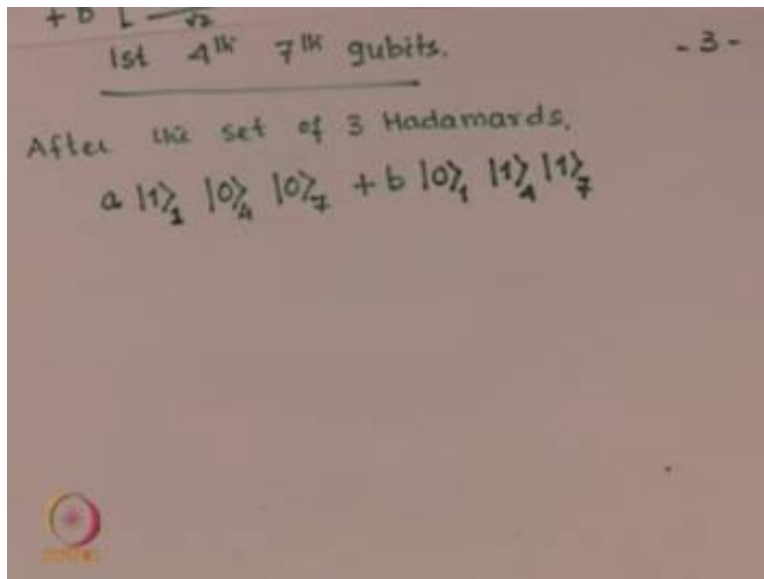 + b [ — √2
1st 4th 7th qubits. - 3 -
After the set of 3 Hadamards.
a |1⟩₁ |0⟩₄ |0⟩₇ + b |0⟩₁ |1⟩₄ |1⟩₇